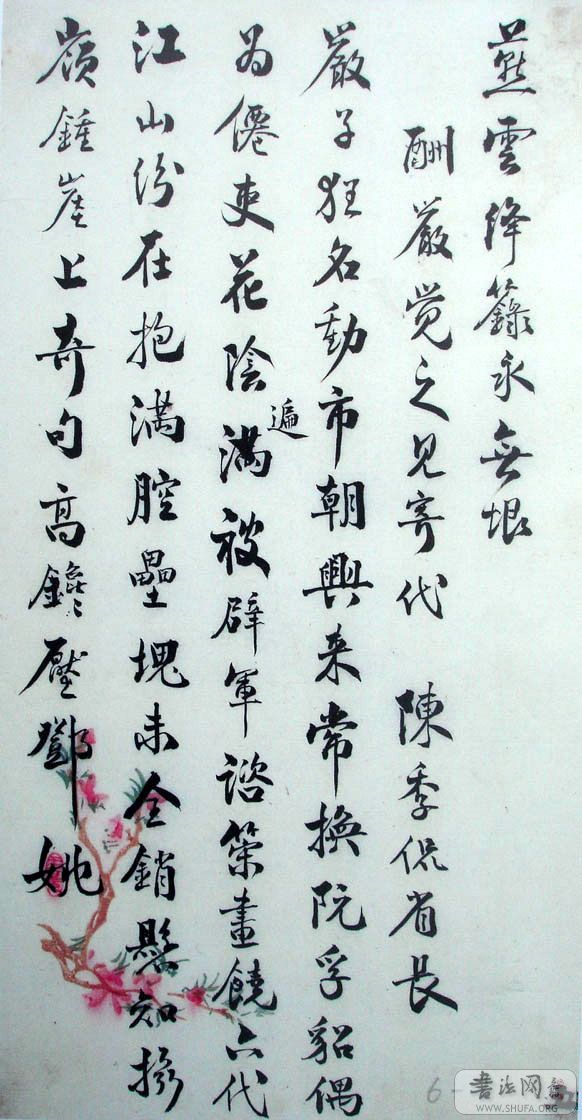 雲絳籙永無垠
酬嚴觉之見寄代 陳季侃省長
嚴子狂名動市朝興来常換阮孚貂偶
為僊吏花陰滿被辟軍諮策畫饒六代
遍
江山紛在抱滿腔壘塊未全銷懸知攝
嶺鍾崖上奇句高鑱壓鄧姚
6-
書法网
WWW.SHUFA.ORG